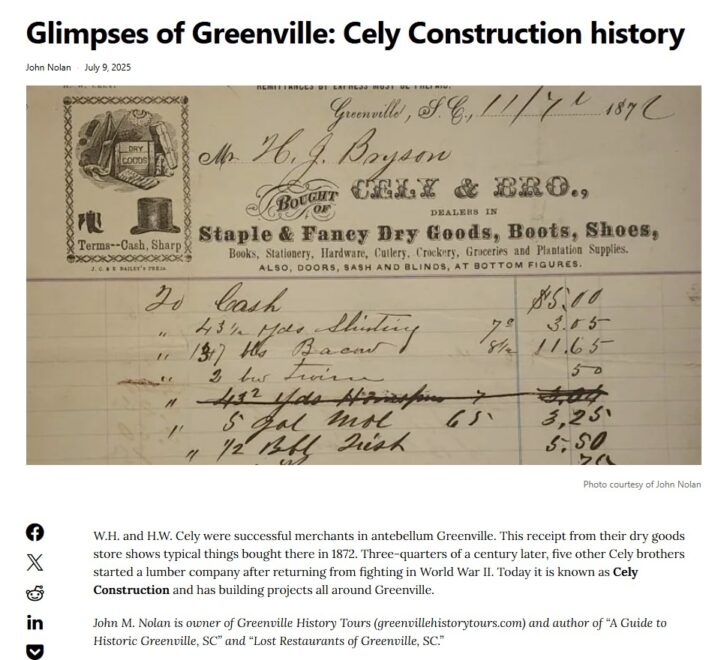 Glimpses of Greenville: Cely Construction history
John Nolan · July 9, 2025
REMITTANCES BY EXPRESS MUST BE PREPAID.
Greenville, S. C., 11/7 1872
Mr H. J. Bryson
BOUGHT OF CELY & BRO.,
DEALERS IN
DRY GOODS
Staple & Fancy Dry Goods, Boots, Shoes,
Terms--Cash, Sharp
Books, Stationery, Hardware, Cutlery, Crockery, Groceries and Plantation Supplies.
ALSO, DOORS, SASH AND BLINDS, AT BOTTOM FIGURES.
J. C. & E. BAILEY'S PRESS.
To Cash $5.00
" 43 1/2 yds Shirting 7 3.05
" 137 lbs Bacon 8 1/2 11.65
" 2 Twine 50
" 432 yds Homespun 7 3.04
" 5 gal mol 65 3,25
" 1/2 Bbl Irish 5.50
Photo courtesy of John Nolan
W.H. and H.W. Cely were successful merchants in antebellum Greenville. This receipt from their dry goods
store shows typical things bought there in 1872. Three-quarters of a century later, five other Cely brothers
started a lumber company after returning from fighting in World War II. Today it is known as Cely
Construction and has building projects all around Greenville.
John M. Nolan is owner of Greenville History Tours (greenvillehistorytours.com) and author of “A Guide to
Historic Greenville, SC” and “Lost Restaurants of Greenville, SC.”